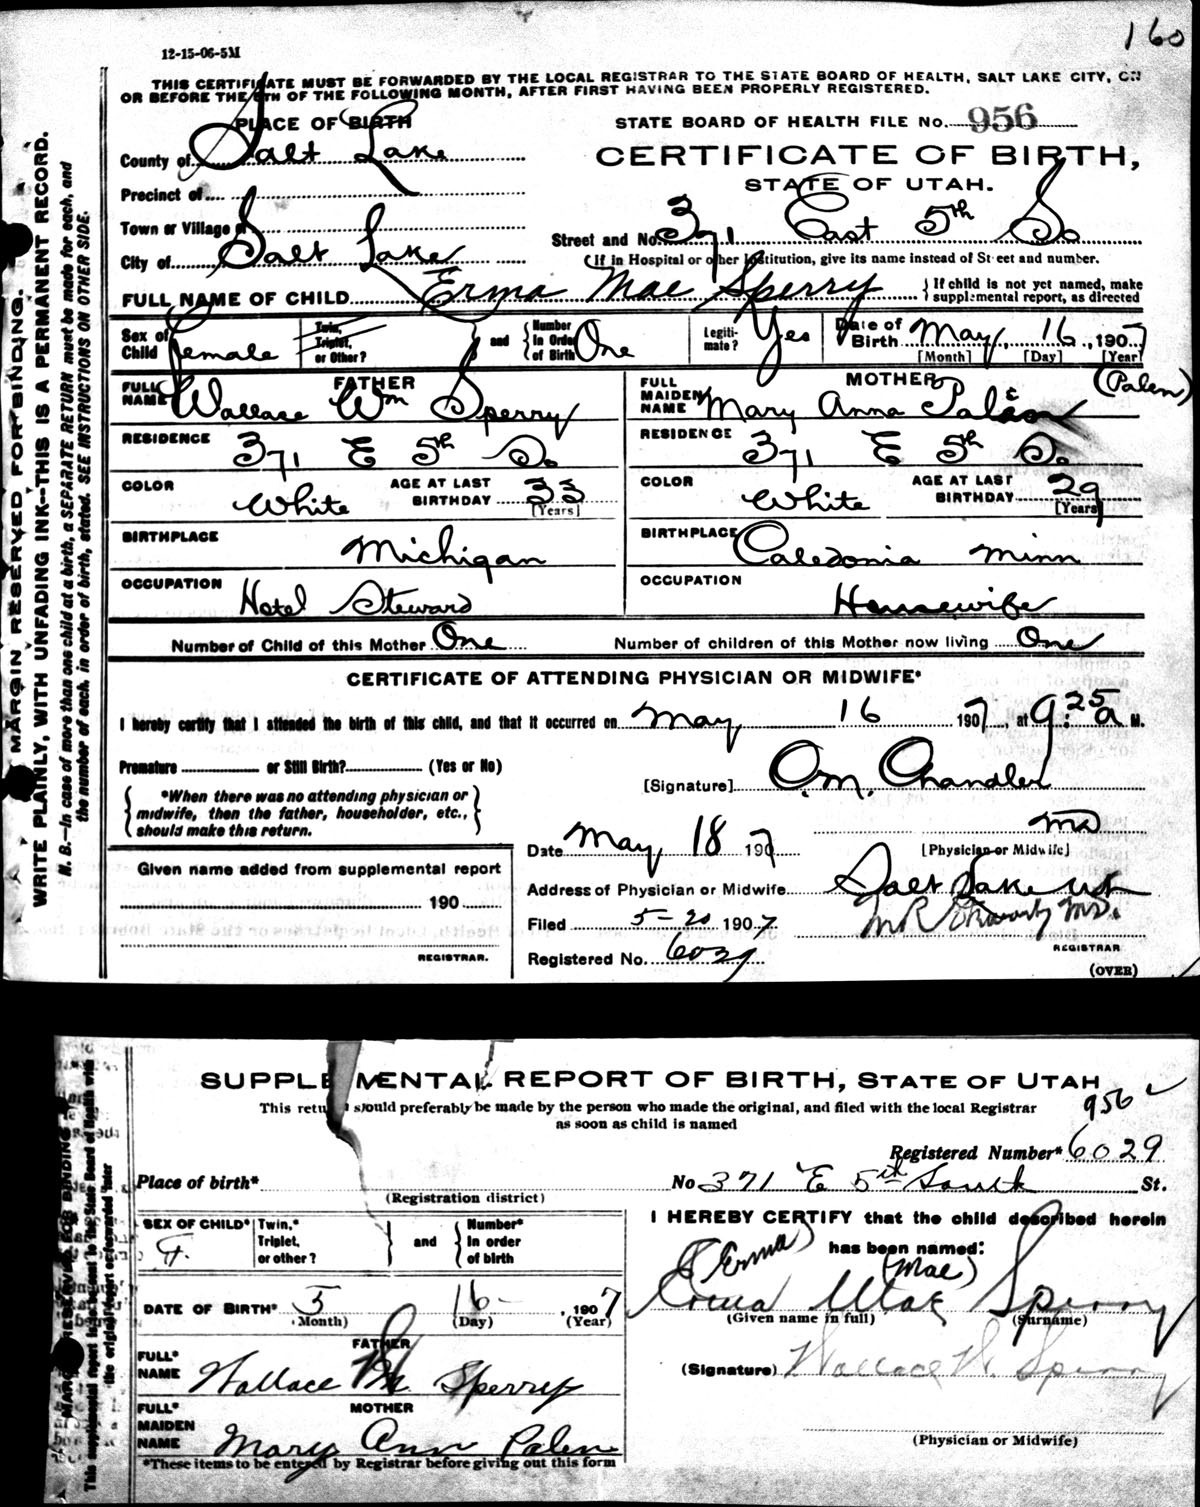 160
12-15-06-5M
THIS CERTIFICATE MUST BE FORWARDED BY THE LOCAL REGISTRAR TO THE STATE BOARD OF HEALTH, SALT LAKE CITY, ON
OR BEFORE THE 5TH OF THE FOLLOWING MONTH, AFTER FIRST HAVING BEEN PROPERLY REGISTERED.
MARGIN RESERVED FOR BINDING.
WRITE PLAINLY, WITH UNFADING INK--THIS IS A PERMANENT RECORD.
N. B.—In case of more than one child at a birth, a SEPARATE RETURN must be made for each, and
the number of each, in order of birth, stated. SEE INSTRUCTIONS ON OTHER SIDE.
PLACE OF BIRTH
STATE BOARD OF HEALTH FILE No. 956
County of Salt Lake
CERTIFICATE OF BIRTH,
STATE OF UTAH.
Precinct of
Town or Village of
Street and No. 371 East 5th So
City of Salt Lake
(If in Hospital or other Institution, give its name instead of Street and number.
FULL NAME OF CHILD Erma Mae Sperry { If child is not yet named, make
supplemental report, as directed
Sex of Child female
Twin, Triplet, or Other?
and
Number In Order of Birth One
Legiti-mate? Yes
Date of Birth May 16, 1907
[Month] [Day] [Year]
FATHER
FULL NAME Wallace Wm Sperry
MOTHER (Palen)
FULL MAIDEN NAME Mary Anna Palen
RESIDENCE 371 E 5th So
RESIDENCE 371 E 5th So
COLOR White AGE AT LAST BIRTHDAY 33 [Years]
COLOR White AGE AT LAST BIRTHDAY 29 [Years]
BIRTHPLACE Michigan
BIRTHPLACE Caledonia Minn
OCCUPATION Hotel Steward
OCCUPATION Housewife
Number of Child of this Mother One Number of children of this Mother now living One
CERTIFICATE OF ATTENDING PHYSICIAN OR MIDWIFE*
I hereby certify that I attended the birth of this child, and that it occurred on May 16 1907, at 9:25 a M.
Premature or Still Birth? (Yes or No)
[Signature] O.M. Chandler
*When there was no attending physician or
midwife, then the father, householder, etc.,
should make this return.
MD
Date May 18 1907 [Physician or Midwife]
Given name added from supplemental report
Address of Physician or Midwife Salt Lake Ut
190
Filed 5-20 1907
REGISTRAR.
REGISTRAR
Registered No. 6029
(OVER)
SUPPLEMENTAL REPORT OF BIRTH, STATE OF UTAH
This return should preferably be made by the person who made the original, and filed with the local Registrar
as soon as child is named
956
Registered Number* 6029
Place of birth* No 371 E 5th South St.
(Registration district)
SEX OF CHILD* F.
Twin,* Triplet, or other?
and
Number* In order of birth
I HEREBY CERTIFY that the child described herein
has been named:
(Erma) (Mae)
Erma Mae Sperry
(Given name in full) (Surname)
DATE OF BIRTH* 5 16 - , 1907
(Month) (Day) (Year)
FATHER
FULL* NAME Wallace W. Sperry
(Signature) Wallace W. Sperry
MOTHER
FULL* MAIDEN NAME Mary Ann Palen
(Physician or Midwife)
*These items to be entered by Registrar before giving out this form